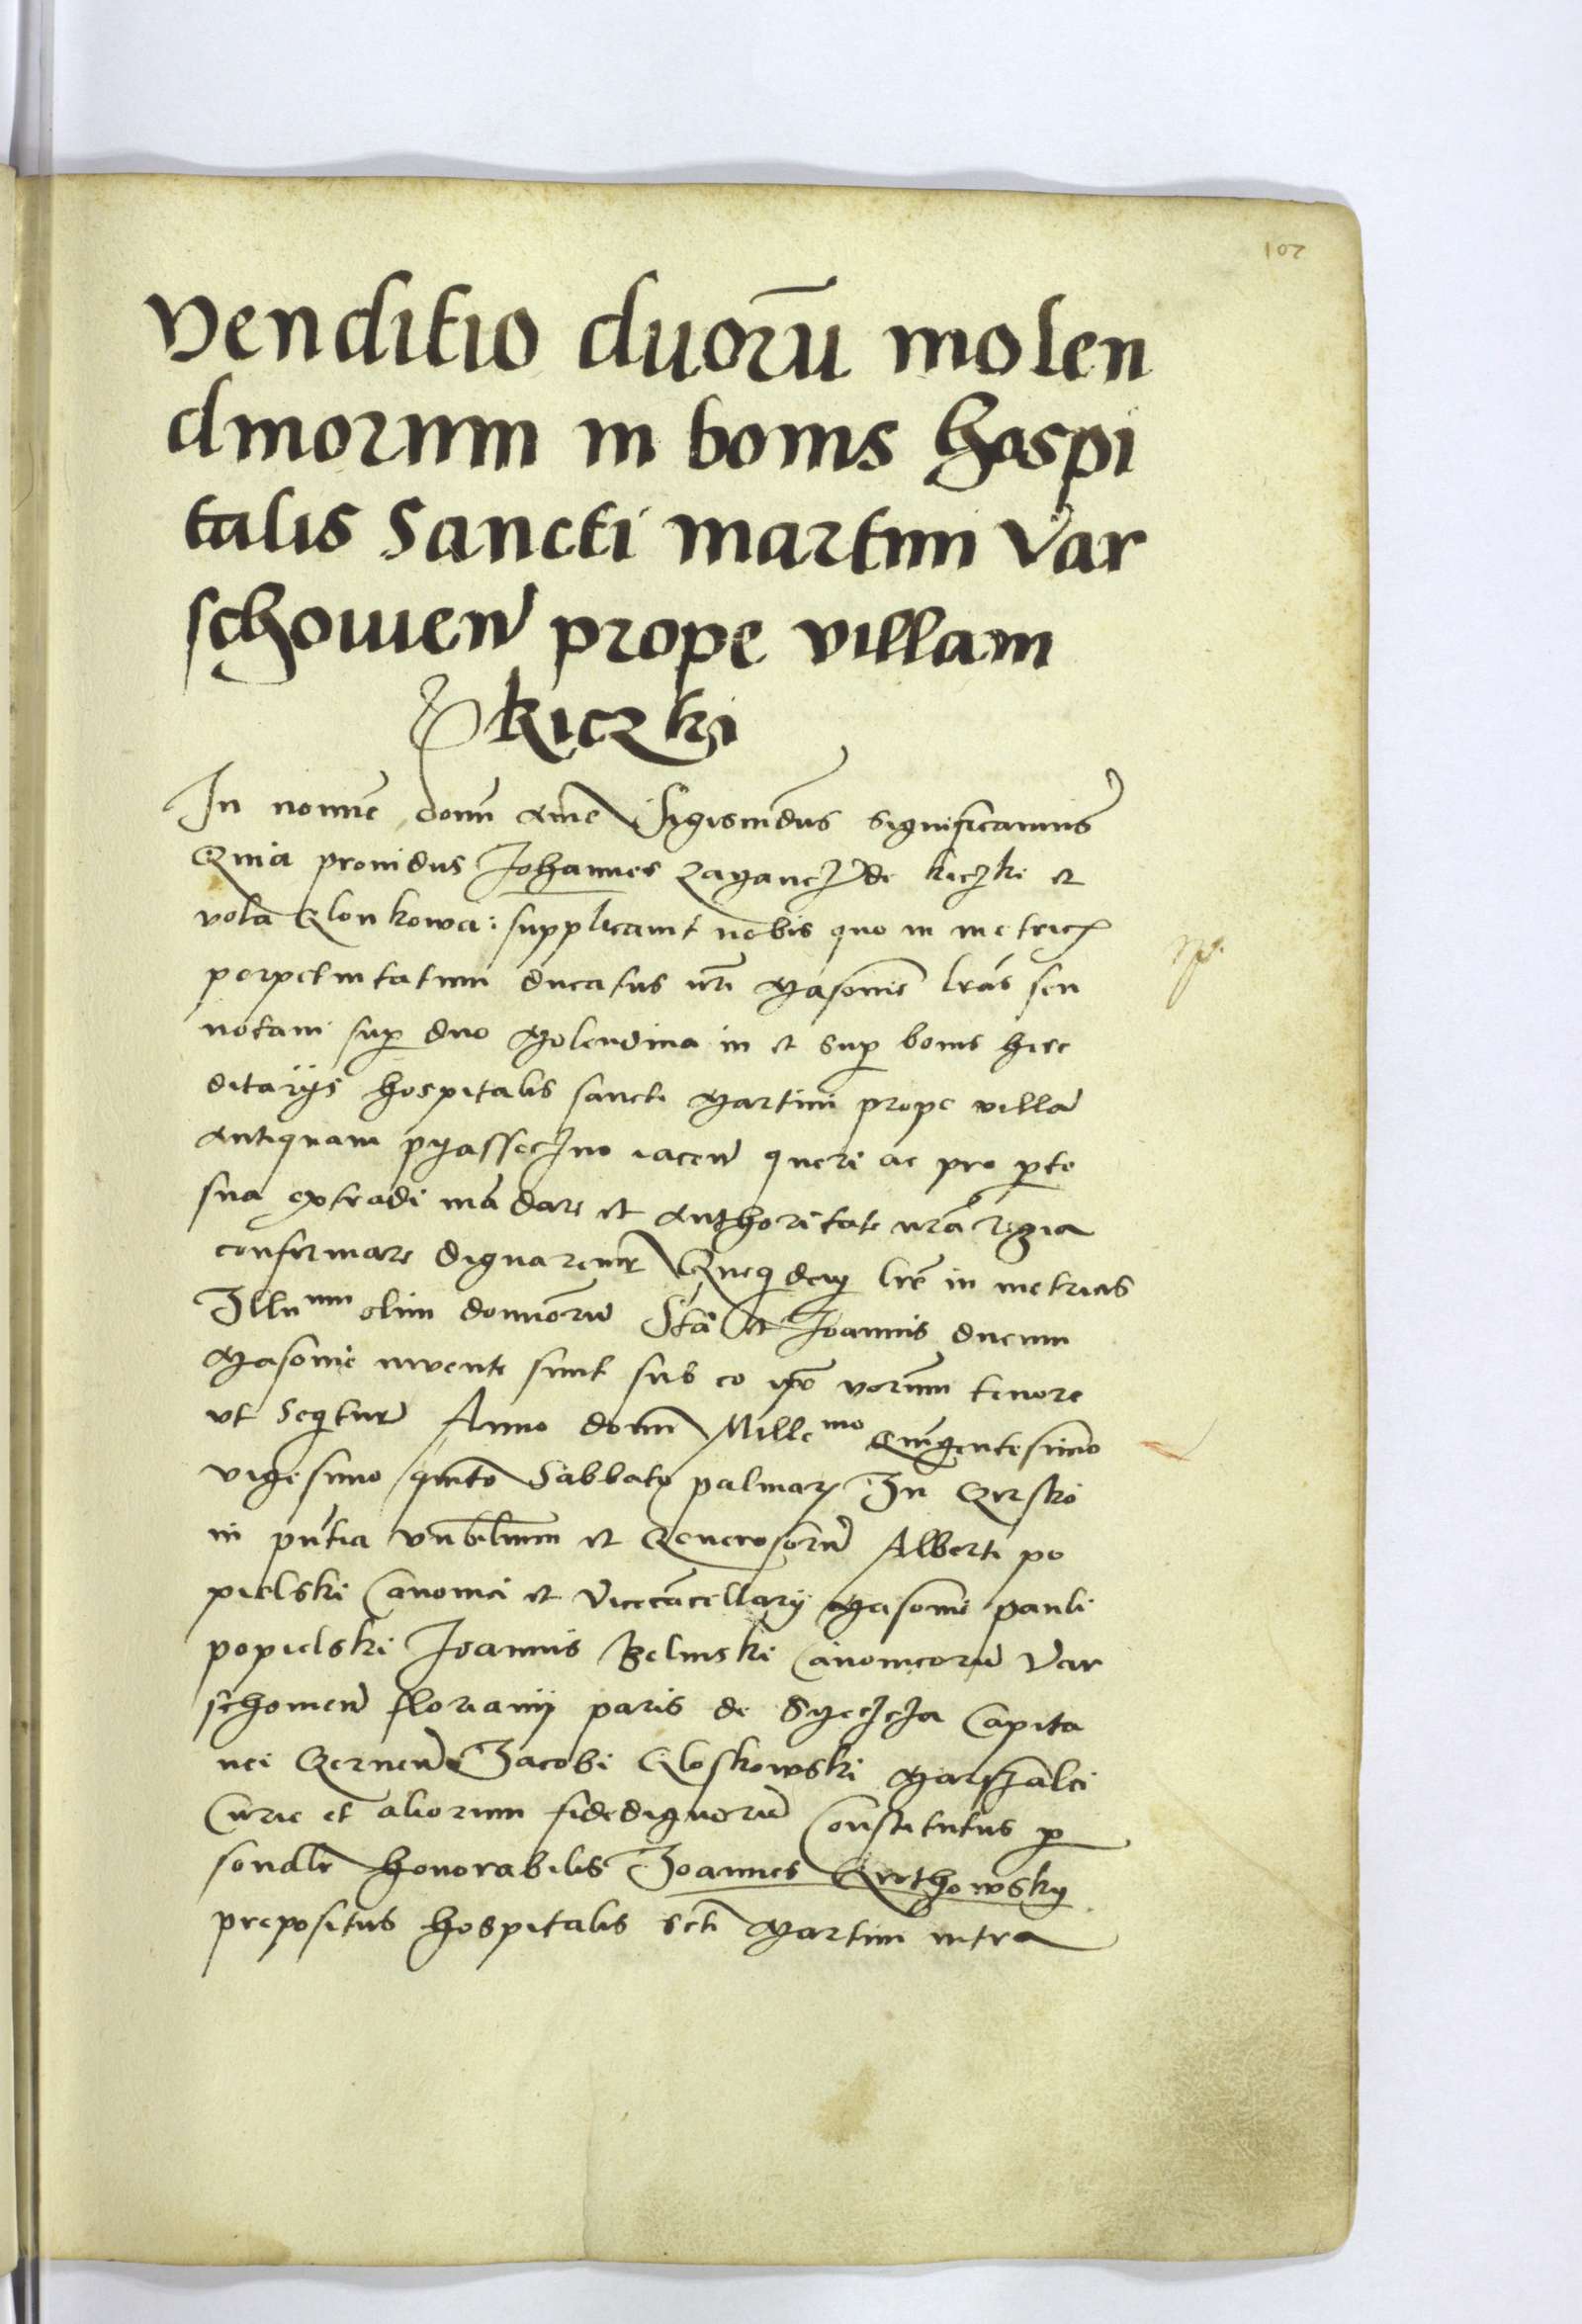 102
Venditio duorū molen
dinorum in bonis hospi
talis Sancti martini Var
schouien prope villam
kiczki
In nomīe domī amē Sigismūdus significamus
Quia prouidus Johannes Zayancz de kiczki et
vola Glonkowa: supplicauit nobis quo in metrice
perpetuitatum ducatus nrī Masouie lrās seu
notam sup duo Molendina in et sup bonis here
ditarijs hospitalis sancti Martini prope villā
antiquam pyasseczno iacen queri ac pro pte
sua extradi mādare et authoritate nrā regia
confirmare dignaremr Quequidem lre in metricis
Illumm olim dominorū Stā et Joannis ducum
Masouie inuente sunt sub eo ipo verum tenore
vt sequitur Anno domī Millemo Quīgentesimo
vigesimo quīto Sabbato palmarum In Czersko
in pñtia vnbilium et Generosorū Alberti po
pielski Canonici et Vicecācellarij Masouie pauli
popielski Joannis Belinski Canonicorū Var
schouien floriani paris de Syeczcza Capita
nei Czernen Jacobi Gloskowski Marschalci
Curie et aliorum fidedignorū Constitutus p
sonalr honorabilis Joannes Grothowsky
prepositus hospitalis scti Martini intra